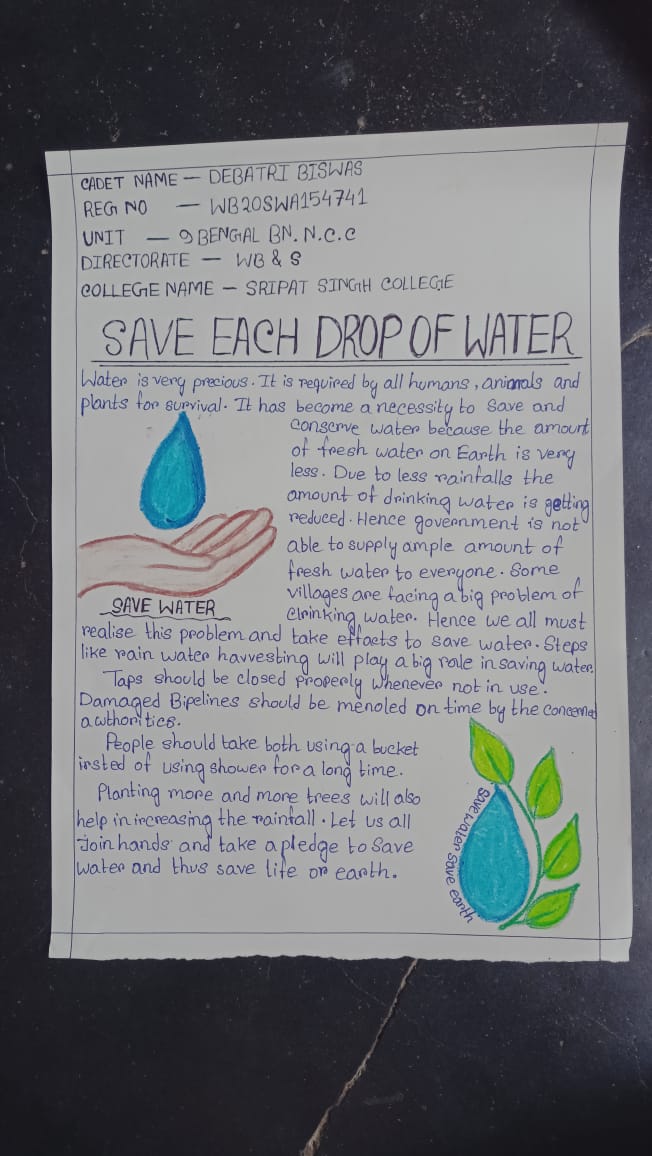 CADET NAME — DEBATRI BISWAS
REG NO — WB20SWA154741
UNIT — 9 BENGAL BN. N.C.C
DIRECTORATE — WB & S
COLLEGE NAME — SRIPAT SINGH COLLEGE
SAVE EACH DROP OF WATER
Water is very precious. It is required by all humans, animals and
plants for survival. It has become a necessity to save and
conserve water because the amount
of fresh water on Earth is very
less. Due to less rainfalls the
amount of drinking water is getting
reduced. Hence government is not
able to supply ample amount of
fresh water to everyone. Some
villages are facing a big problem of
drinking water. Hence we all must
SAVE WATER
realise this problem and take effacts to save water. Steps
like rain water havvesting will play a big rale in saving water.
Taps should be closed properly whenever not in use.
Damaged Bipelines should be menoled on time by the concerned
authorities.
People should take both using a bucket
insted of using shower for a long time.
Planting more and more trees will also
help in increasing the rainfall. Let us all
Join hands and take a pledge to save
water and thus save life or earth.
Save water save earth